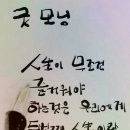 굿 모닝
人生이 무조건
즐거워야
하는것은 우리에게
人生이란